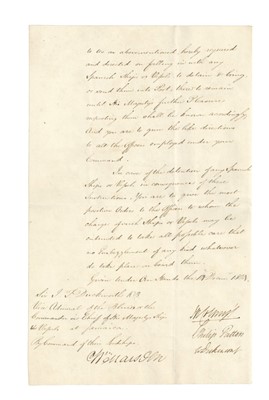 to do as abovementioned hereby required
and directed on falling in with any
Spanish Ships or Vessels to detain & bring
or send them into Port, there to remain
until His Majesty's further Pleasure
respecting them shall be known accordingly,
And you are to give the like directions
to all the officers employed under your
Command.
In case of the detention of any Spanish
Ships or Vessels in consequence of these
Instructions, You are to give the most
positive Orders to the officers to whom the
charge of such Ships or Vessels may be
entrusted to take all possible care that
no Embezzlement of any kind whatsoever
do take place on board them.
Given under Our Hands the
Sir J. T. Duckworth K.B.
Vice Admiral of the Blue &
Commander in Chief of His Majesty's Ships
& Vessels at Jamaica
By Command of their Lordships
Philip Patton